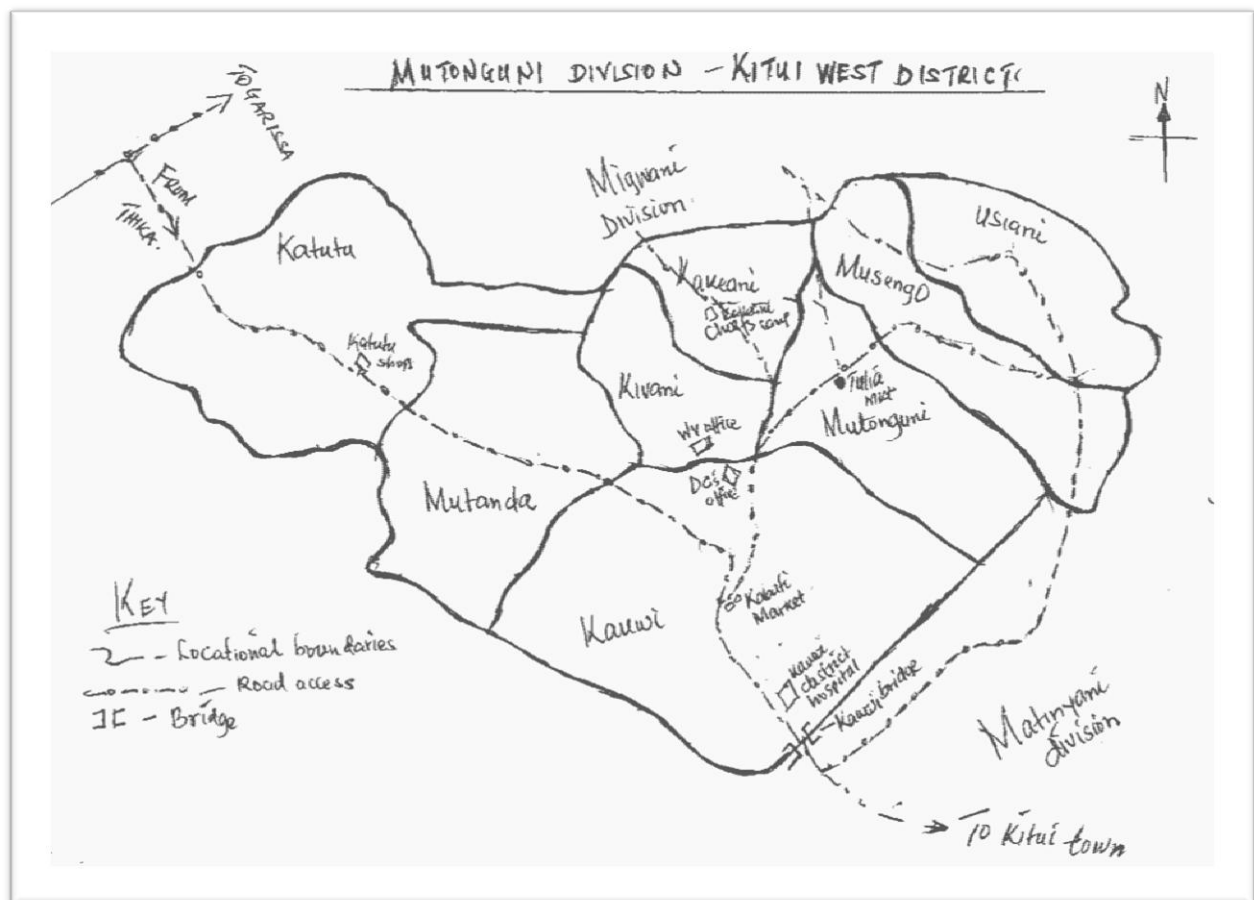 MUTONGUNI DIVISION - KITUI WEST DISTRICT
TO GARISSA
N
FROM
THIKA.
Migwani
Division.
Usiani
Katutu
Kakeani
Musengo
Chief's camp
Katutu
shops
Kivani
Tulia
Mkt
Mutonguni
WV office
DO's
office
Mutanda
Kabati
Market
Kauwi
Kauwi
district
hospital
Kauwi bridge
Matinyani
division
To Kitui town
KEY
- Locational boundaries
- Road access
- Bridge